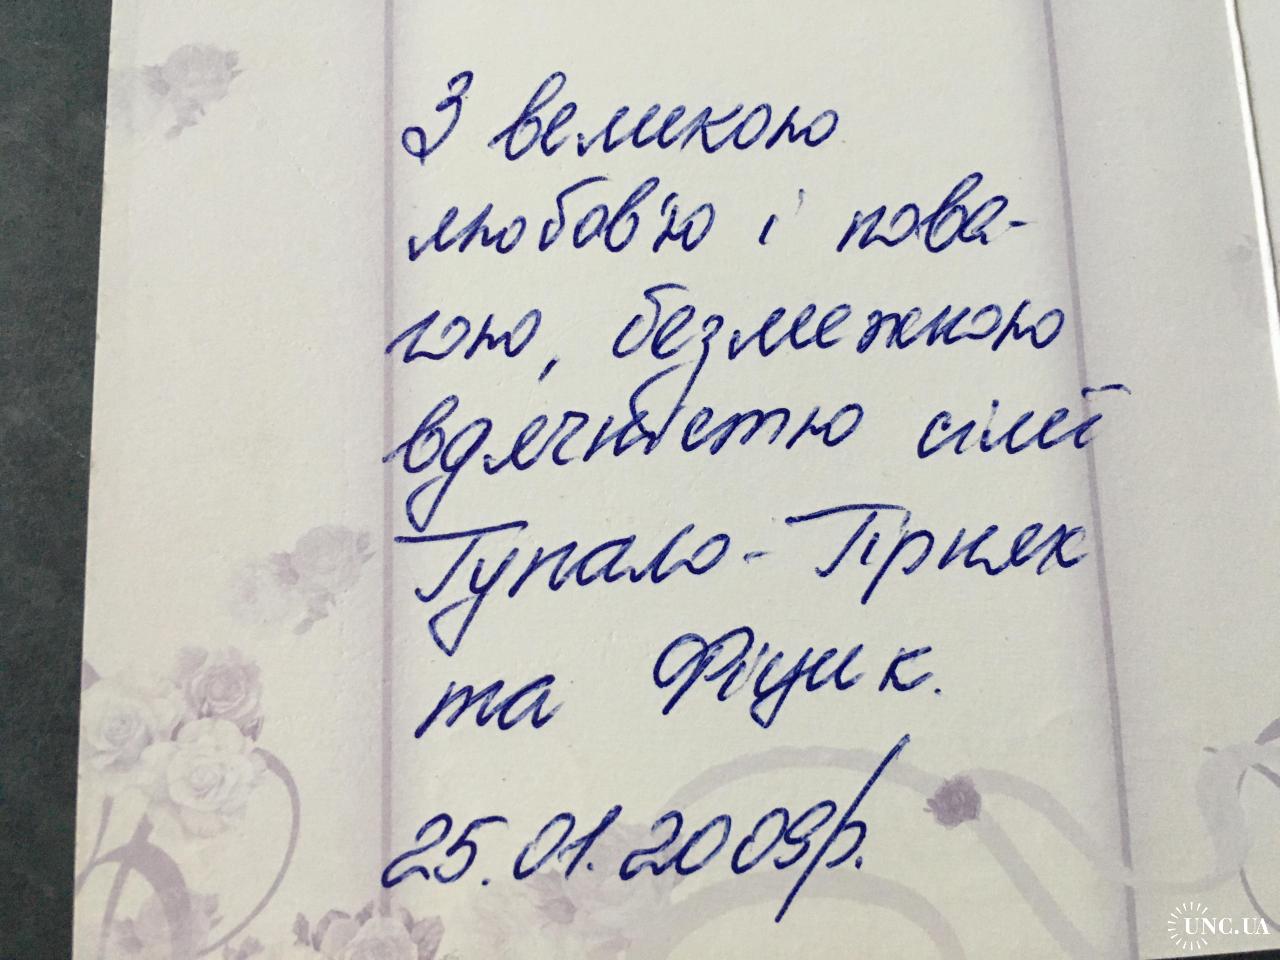 З великою
любов'ю і пова-
гою, безмежною
вдячністю сімї
Тупало-Гірняк
та Фіцик.
25.01.2009р.
UNC.UA